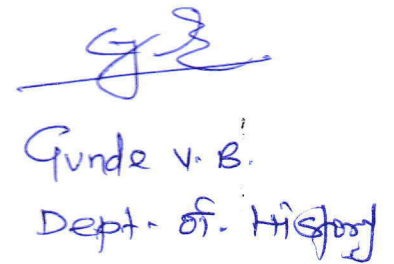 Gunde V. B.
Dept. of. History